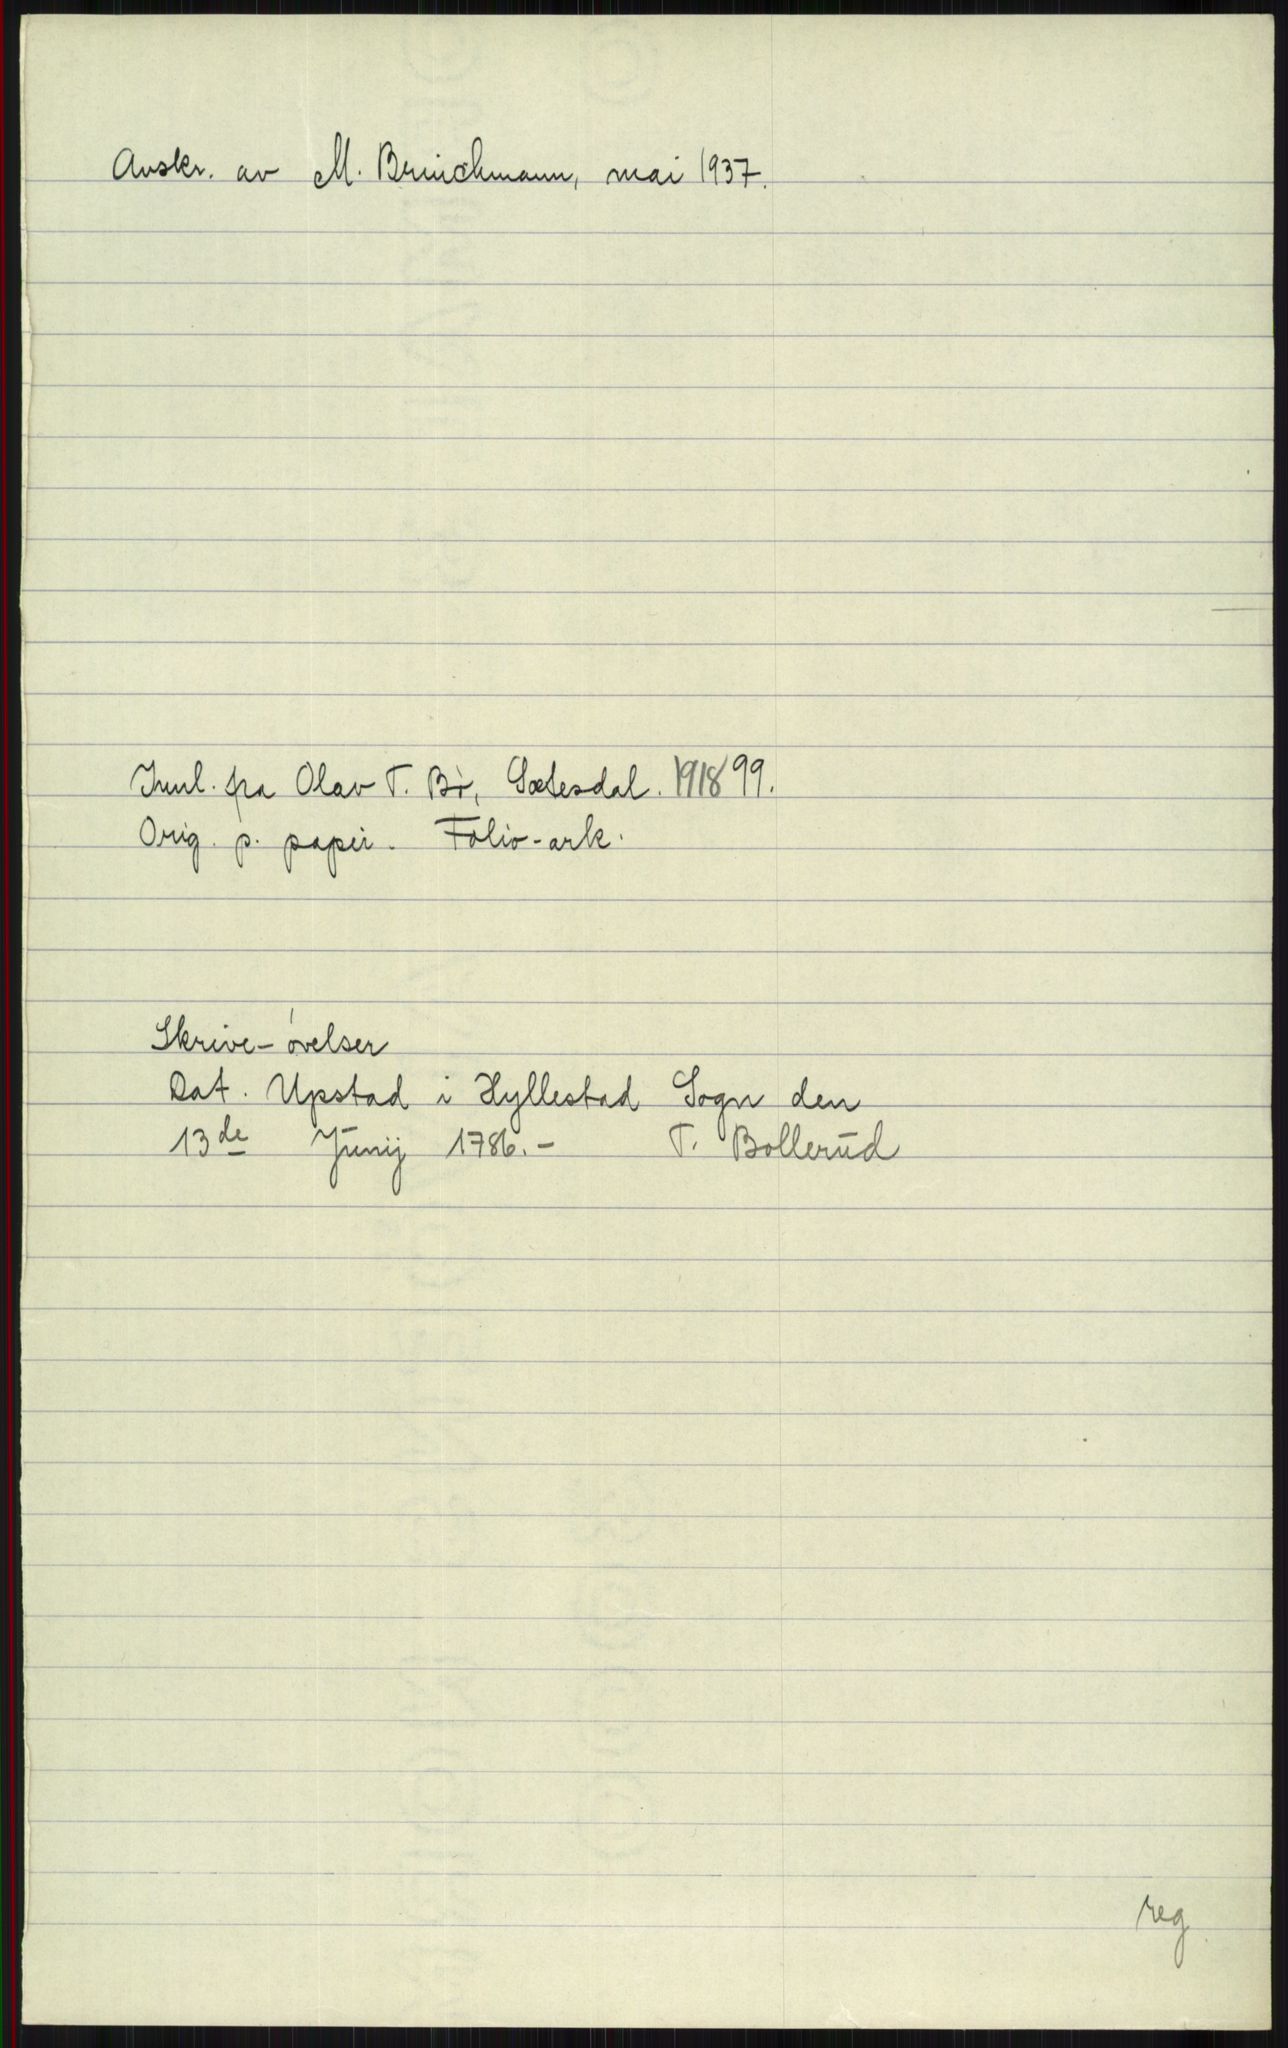 Avskr. av M. Brinchmann, mai 1937.
Innl. fra Olav T. Bø, Sætesdal. 1918 99.
Orig. p. papir. Folio-ark.
Skrive-øvelser
Dat. Upstad i Hyllestad Sogn den
13de Junij 1786.- T. Bollerud
reg